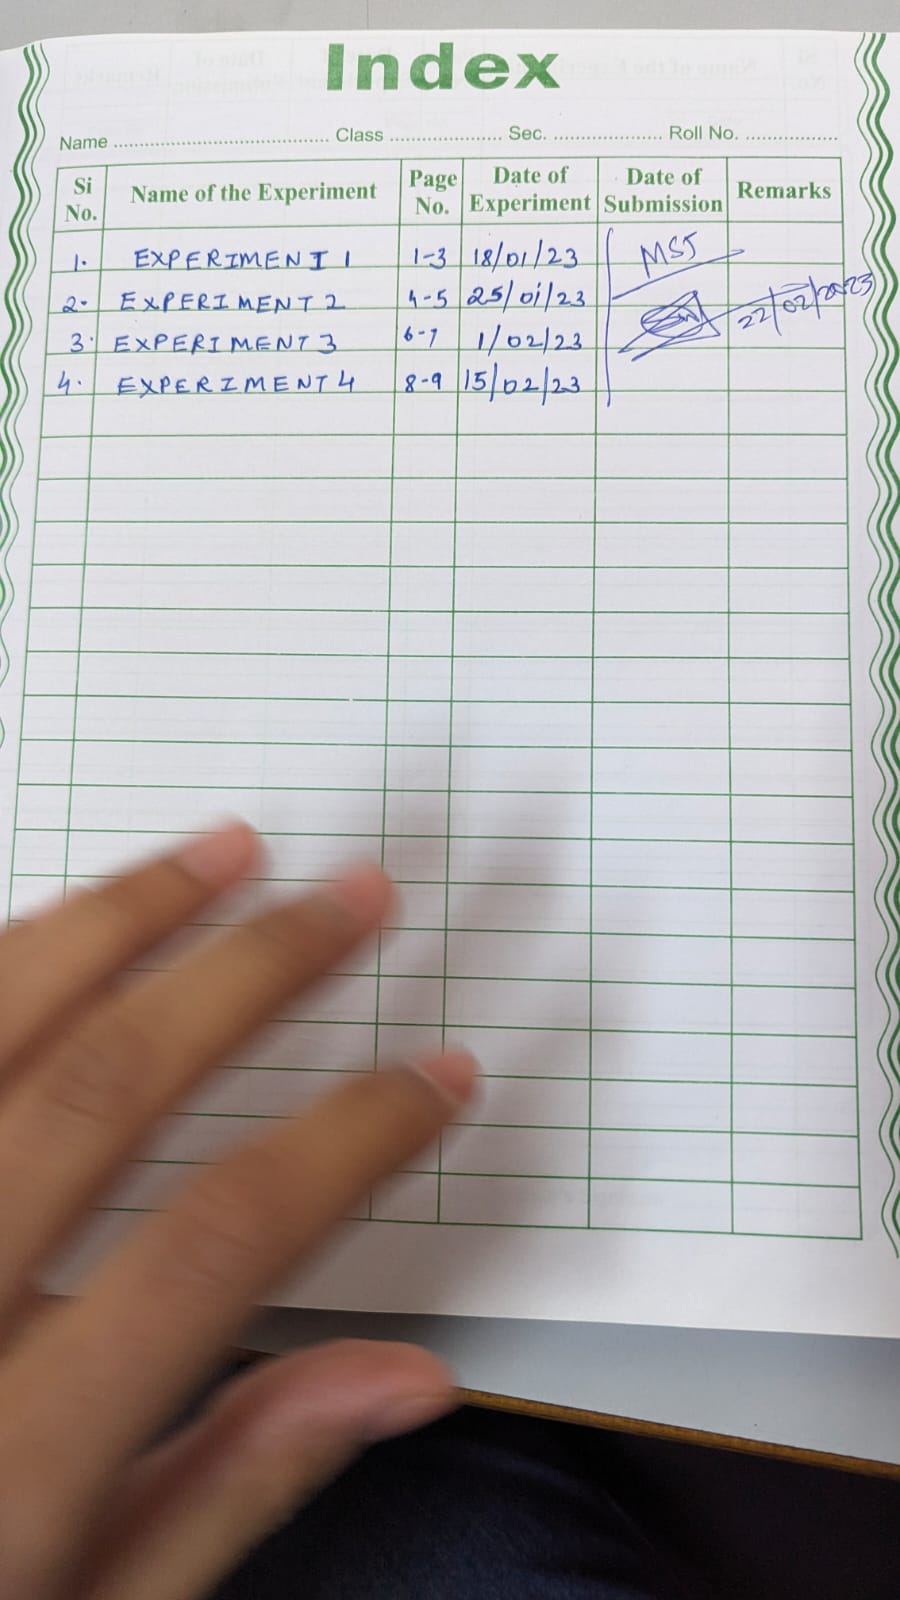 Index
Name ........................................ Class ..................... Sec. ..................... Roll No. .................
Si No. Name of the Experiment Page No. Date of Experiment Date of Submission Remarks
1. EXPERIMENT 1 1-3 18/01/23 MST
2. EXPERIMENT 2 4-5 25/01/23 22/02/2023
3. EXPERIMENT 3 6-7 1/02/23
4. EXPERIMENT 4 8-9 15/02/23